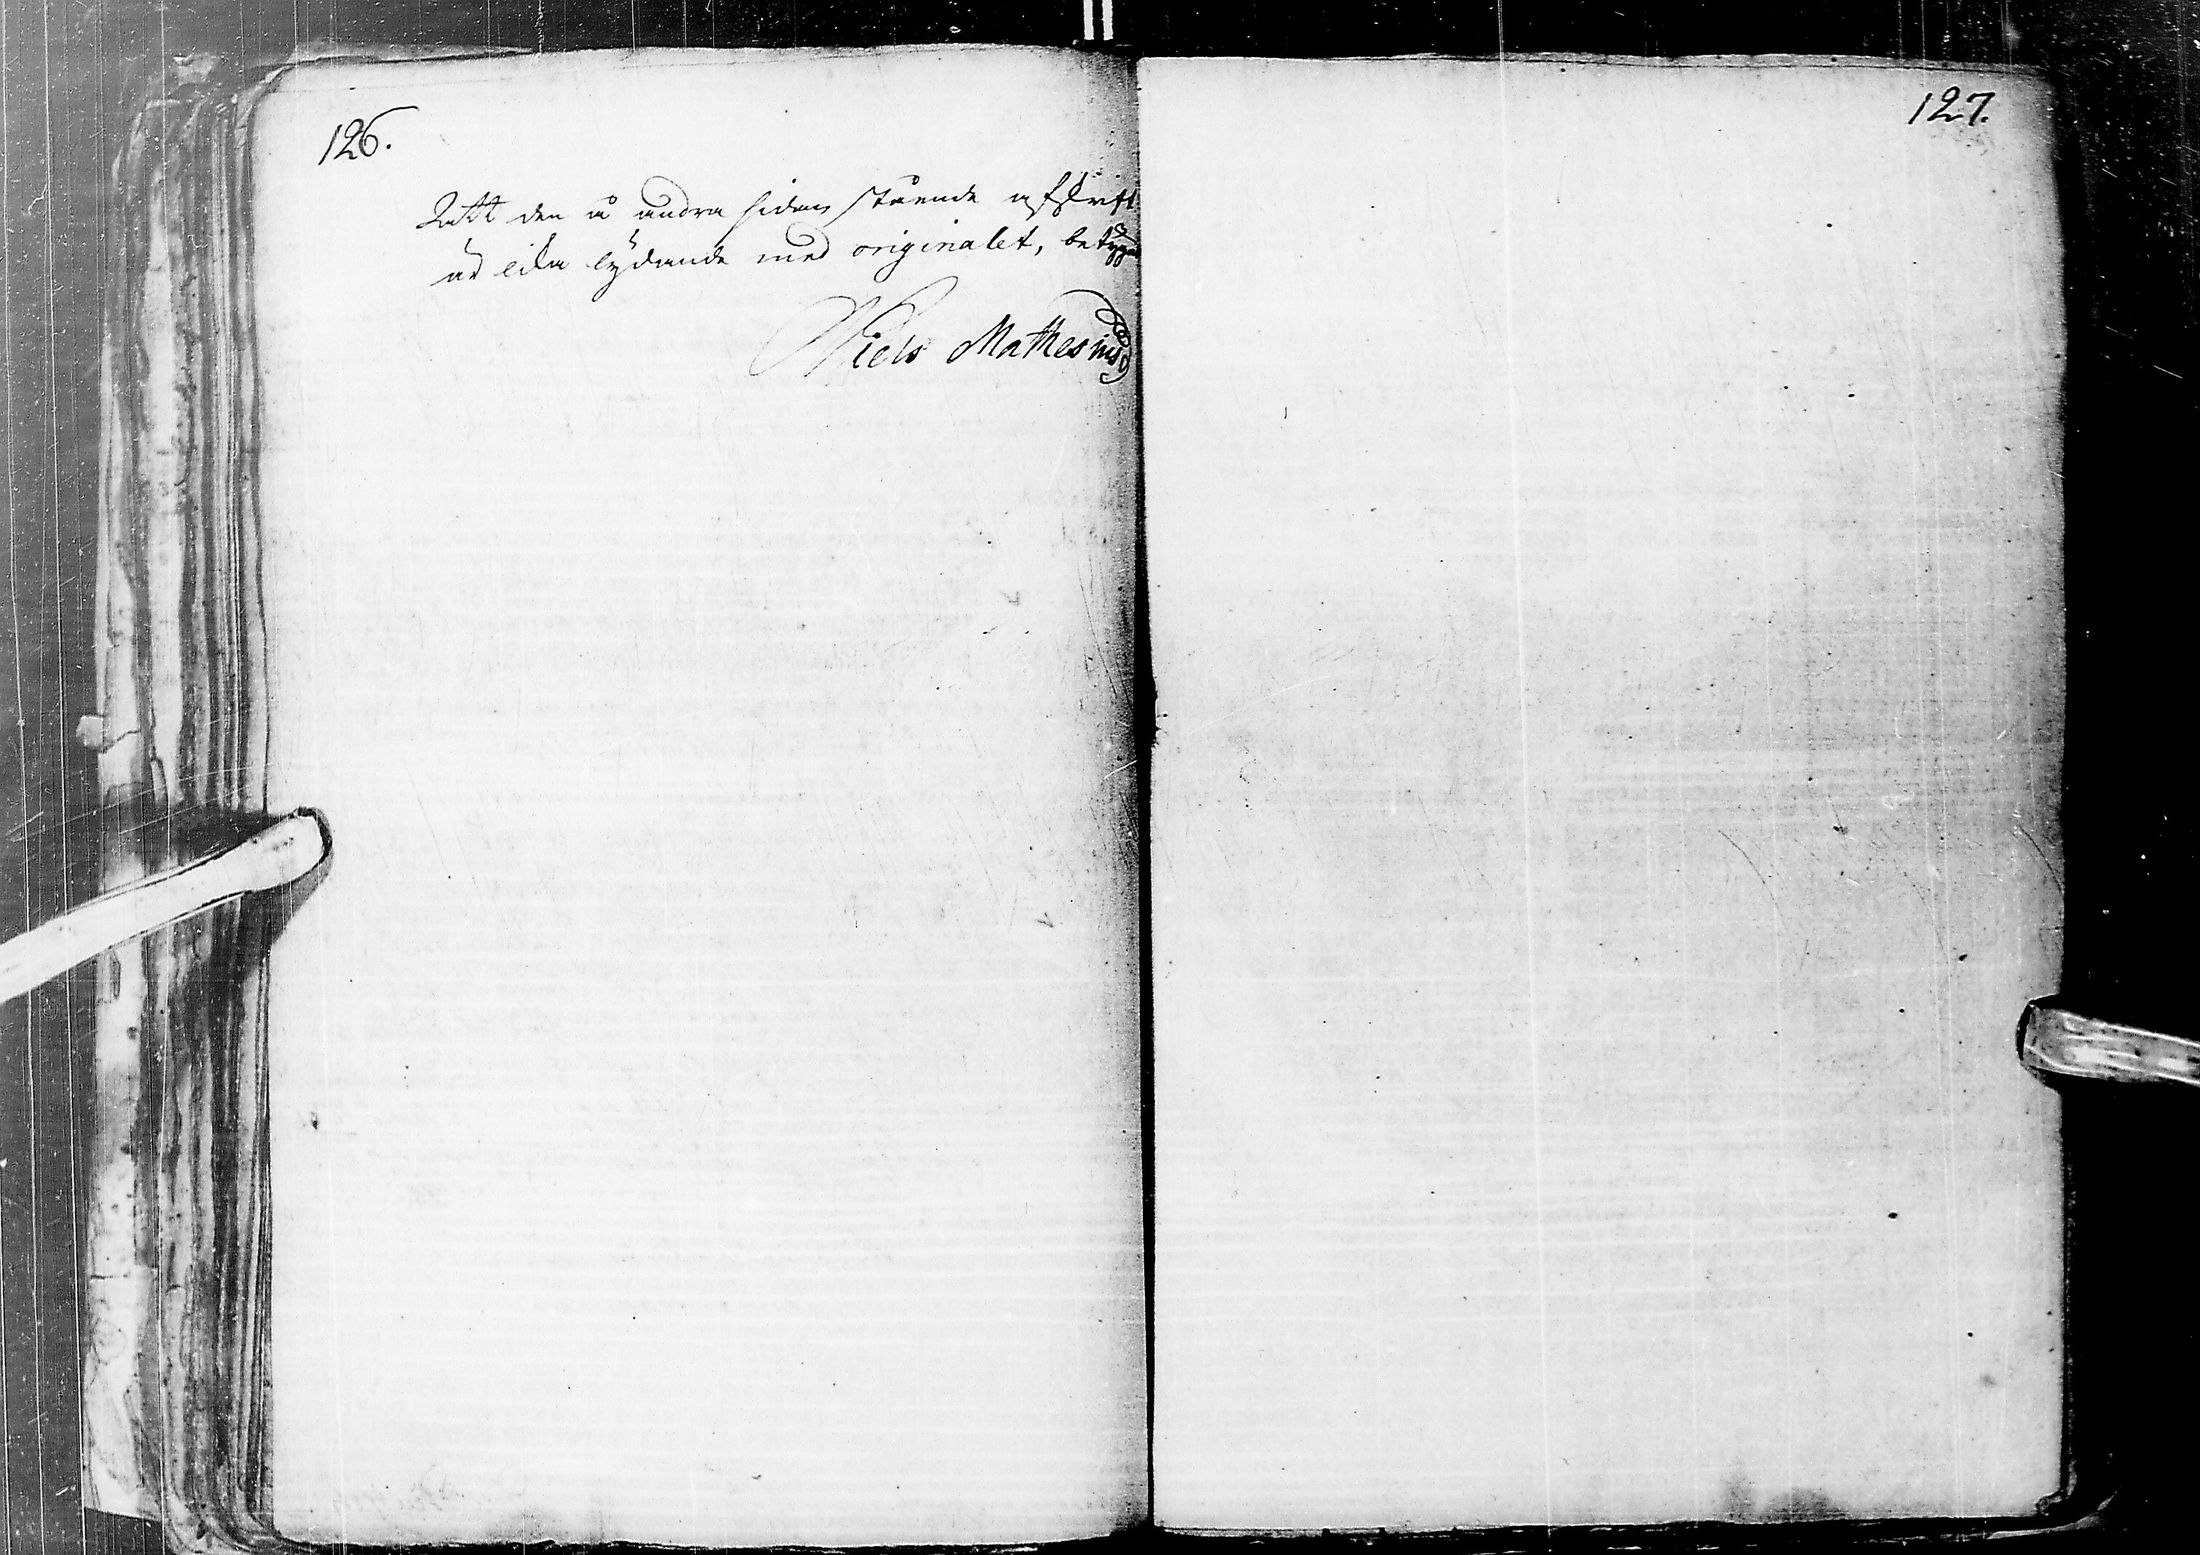 126.
Att den å andra sidan stående afskrift
är lika lydande med originalet, betygar
Niels Mathesius
127.